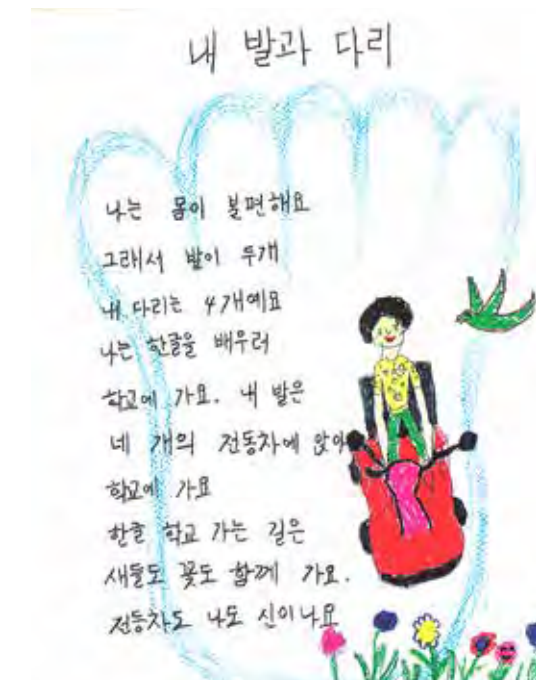 내 발과 다리
나는 몸이 불편해요
그래서 발이 두개
내 다리는 4개예요
나는 한글을 배우러
학교에 가요. 내 발은
네 개의 전동차에 앉아
학교에 가요
한글 학교 가는 길은
새들도 꽃도 함께 가요.
전동차도 나도 신이나요